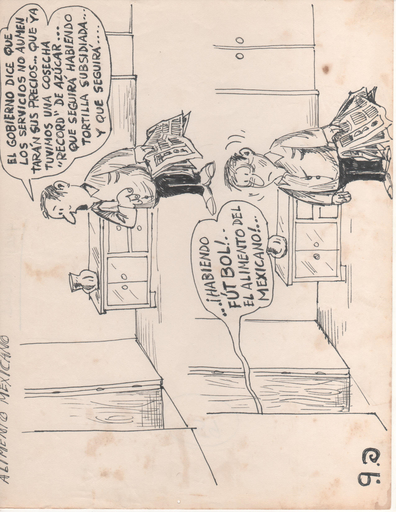 ALIMENTO MEXICANO
EL GOBIERNO DICE QUE
LOS SERVICIOS NO AUMEN
TARÁN SUS PRECIOS... QUE YA
TUVIMOS UNA COSECHA
"RECORD" DE AZÚCAR...
QUE SEGUIRÁ HABIENDO
TORTILLA SUBSIDIADA...
Y QUE SEGUIRÁ....
...¡HABIENDO
FÚTBOL!..
EL ALIMENTO DEL
MEXICANO!...